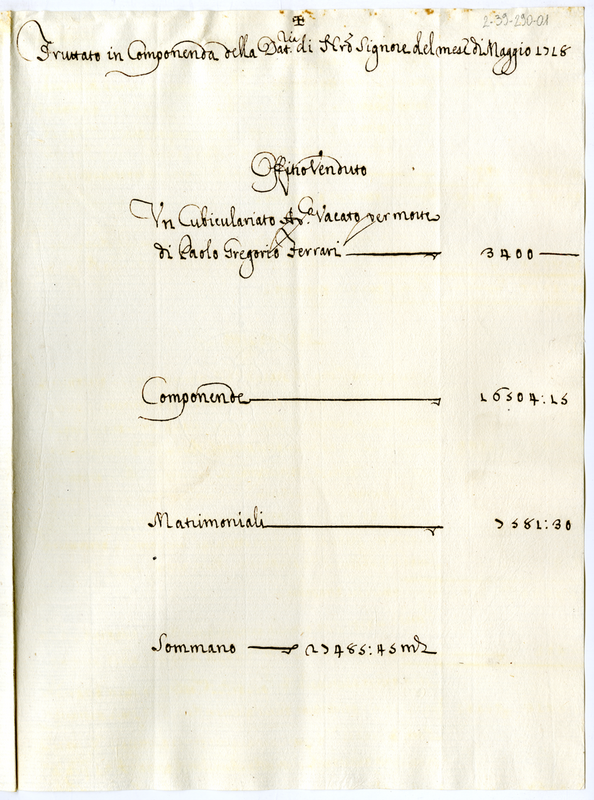 ✠
2-39-290-01
Fruttato in Componenda della Dat.ria di Nro Signore del mese di Maggio 1718
Offitio Venduto
Vn Cubiculariato Ap.co Vacato per morte
di Paolo Gregorio Ferrari 3400
Componende 16504:15
Matrimoniali 3581:30
Sommano 23485:45 mta